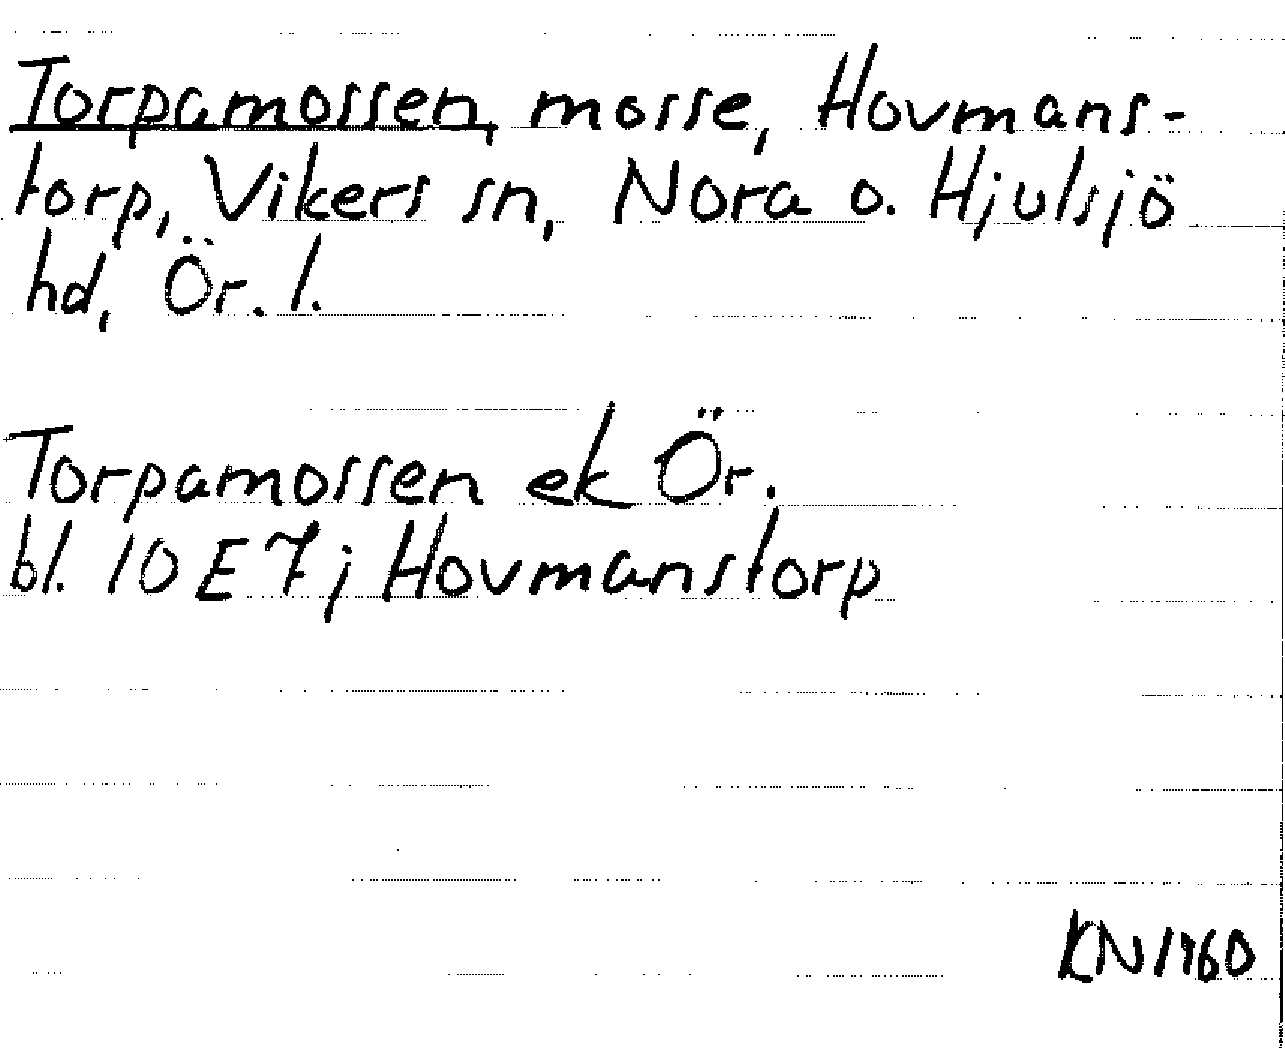 Torpamossen, mosse, Hovmans-
torp, Vikers sn, Nora o. Hjulsjö
hd, Ör. l.
Torpamossen ek Ör.
bl. 10 E 7j Hovmanstorp
KN 1960